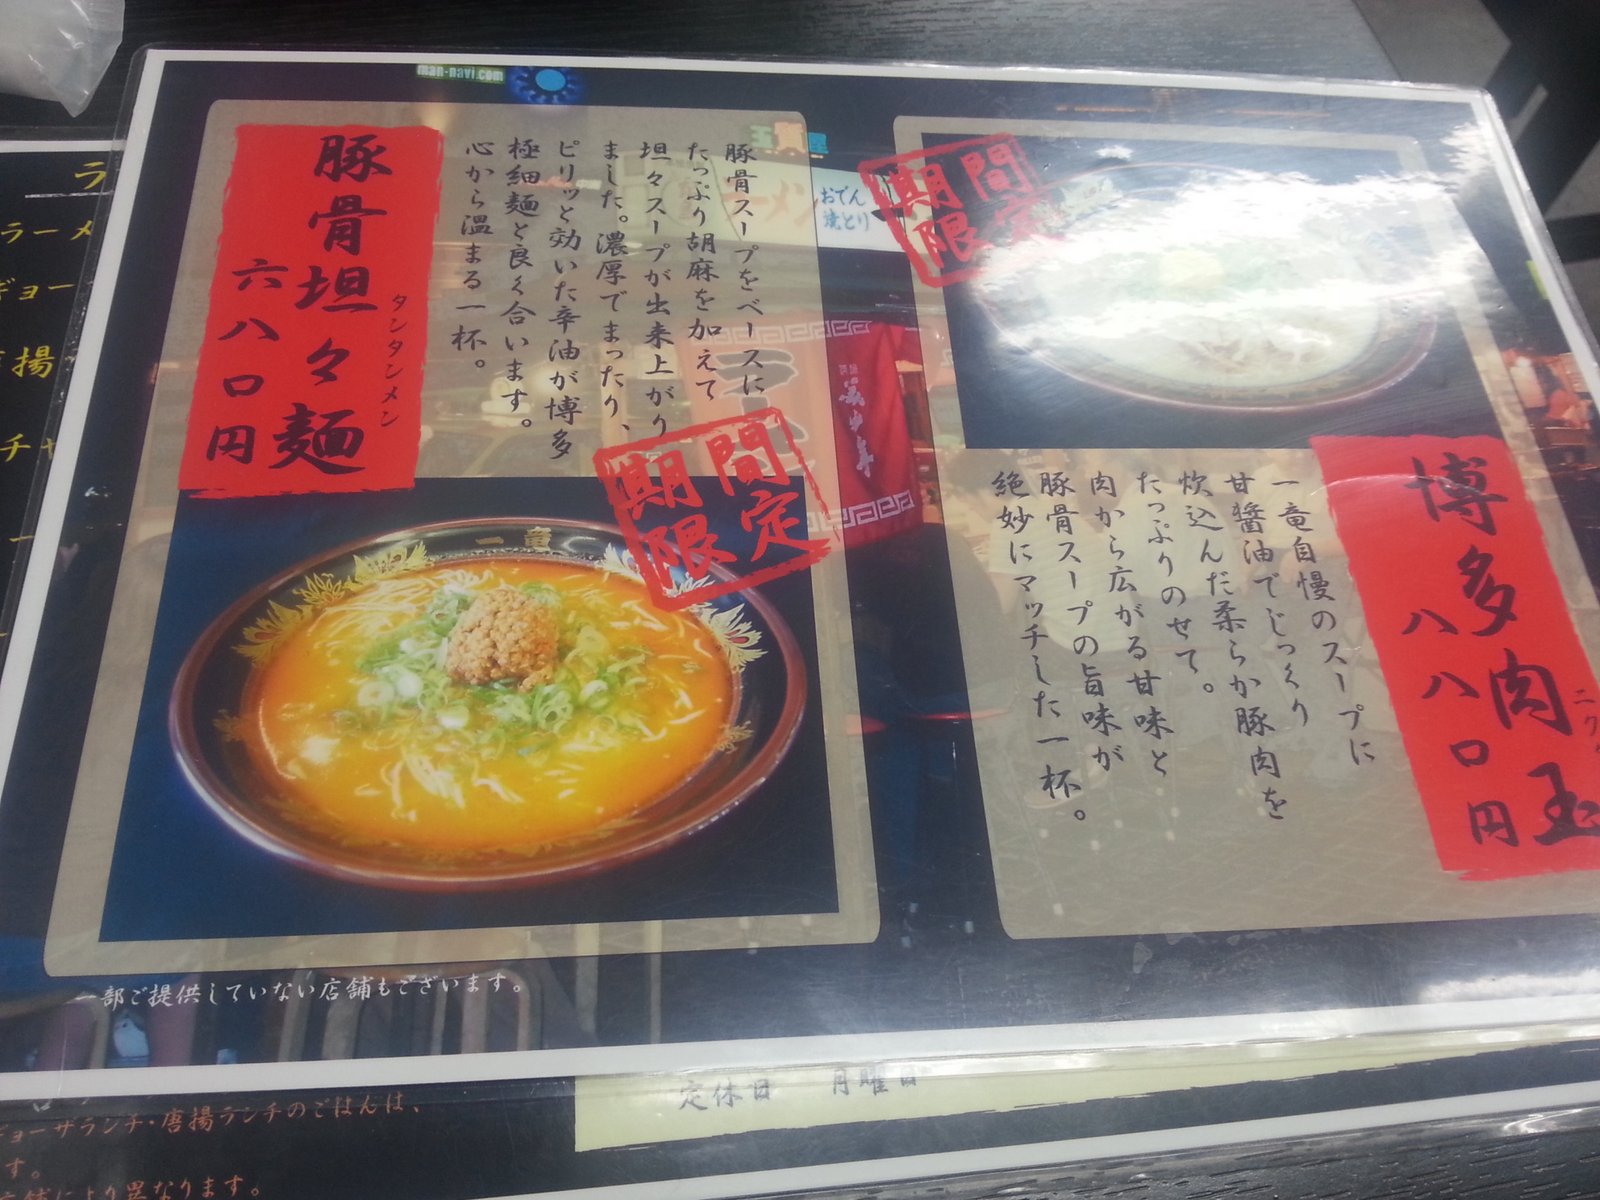 豚骨坦々麺
タンタンメン
六八〇円
豚骨スープをベースに
たっぷり胡麻を加えて
坦々スープが出来上がり
ました。濃厚でまったり、
ピリッと効いた辛油が博多
極細麺と良く合います。
心から温まる一杯。
期間
限定
一竜
期間
限定
博多肉玉
八八〇円
一竜自慢のスープに
甘醤油でじっくり
炊込んだ柔らか豚肉を
たっぷりのせて。
肉から広がる甘味と
豚骨スープの旨味が
絶妙にマッチした一杯。
man-navi.com
ラーメン
おでん
焼とり
一部ご提供していない店舗もございます。
定休日 月曜日
ギョーザランチ・唐揚ランチのごはんは、
す。
店舗により異なります。